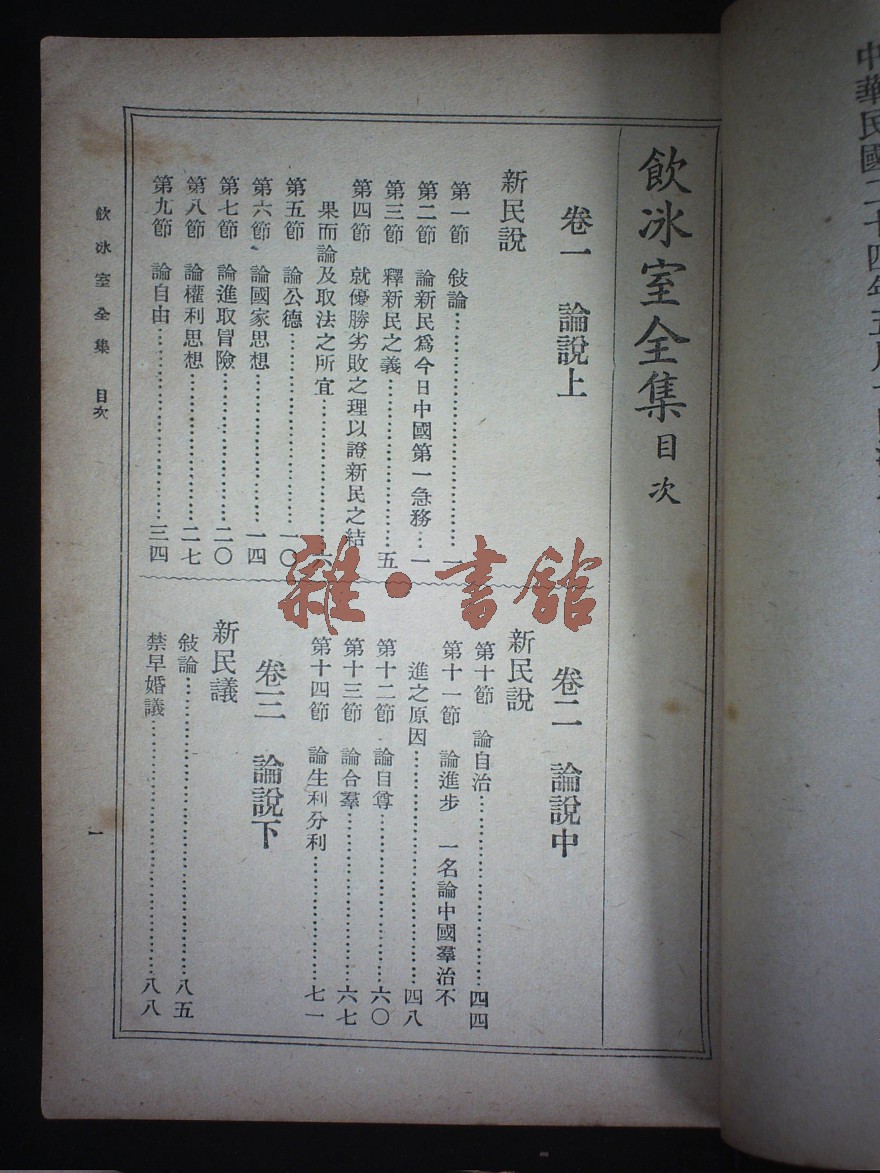 中華民國二十四年五月
飲冰室全集目次
卷一　論說上
新民說
第一節　敍論……一
第二節　論新民爲今日中國第一急務…一
第三節　釋新民之義……五
第四節　就優勝劣敗之理以證新民之結
果而論及取法之所宜……六
第五節　論公德……一〇
第六節　論國家思想……一四
第七節　論進取冒險……二〇
第八節　論權利思想……二七
第九節　論自由……三四
卷二　論說中
新民說
第十節　論自治……四四
第十一節　論進步　一名論中國羣治不
進之原因……四八
第十二節　論自尊……六〇
第十三節　論合羣……六七
第十四節　論生利分利……七一
卷三　論說下
新民議
敍論……八五
禁早婚議……八八
飲冰室全集　目次
一
雜·書館